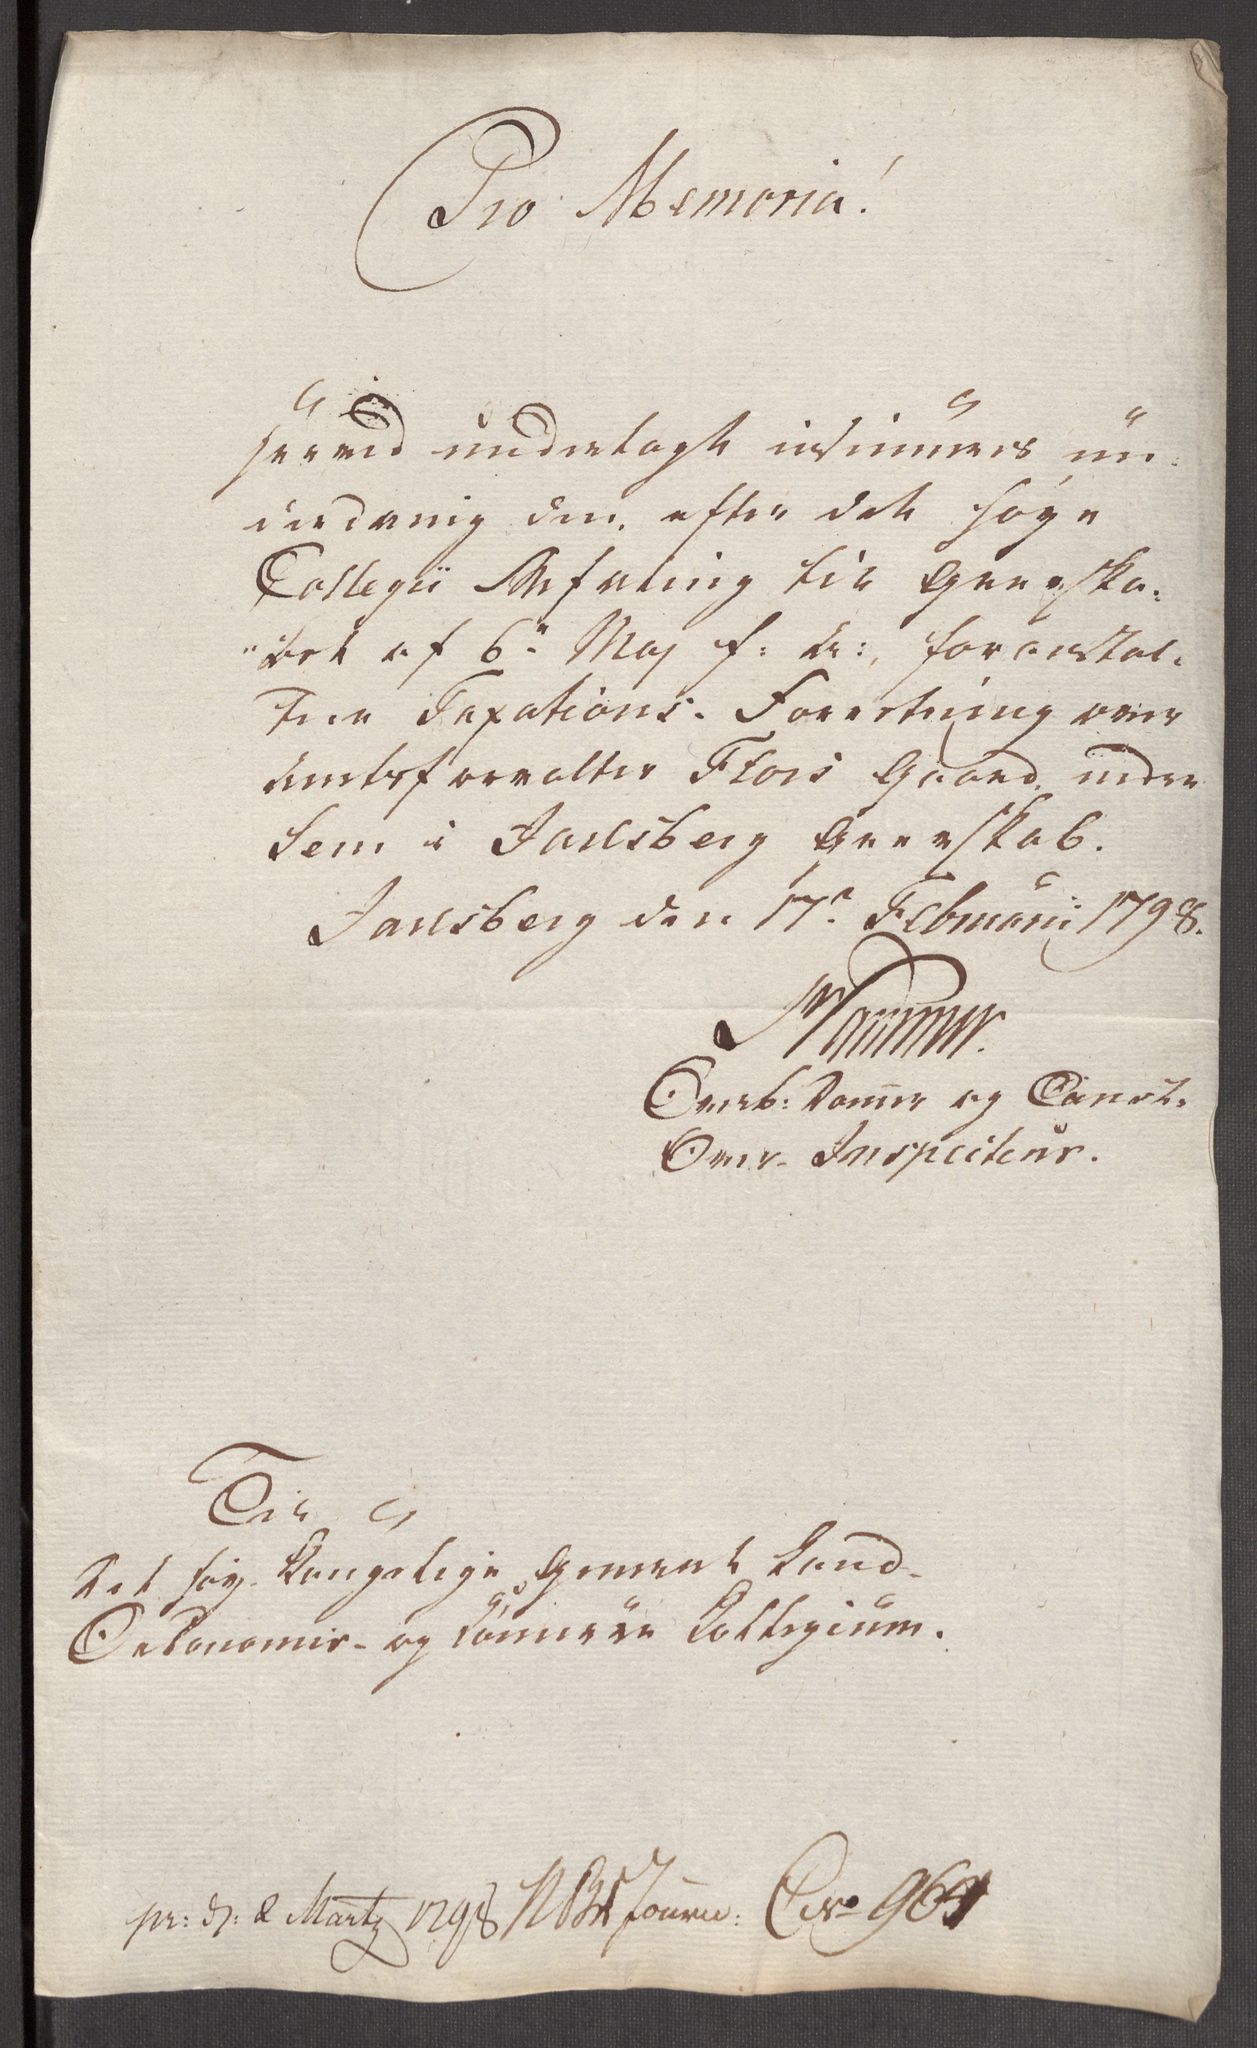 Pro Memoria!
Herved underlagt insinueres un-
derdanig den, efter det høye
Collegii Befaling til Grevska-
"bet af 6te Maj f: A:, foranstal-
tede Taxations-Forretning over
Amtsforvalter Flors Gaard nedre
Sem i Jarlsberg Grevskab.
Jarlsberg den 17de Februarii 1798.
Wammer.
Overb: Dommer og Const.
Over-Inspecteur.
Til
Det høy Kongelige General Land-
Oekonomie- og Commerce Collegium.
pr: d: 2 Martz 1798 Journ: No 969